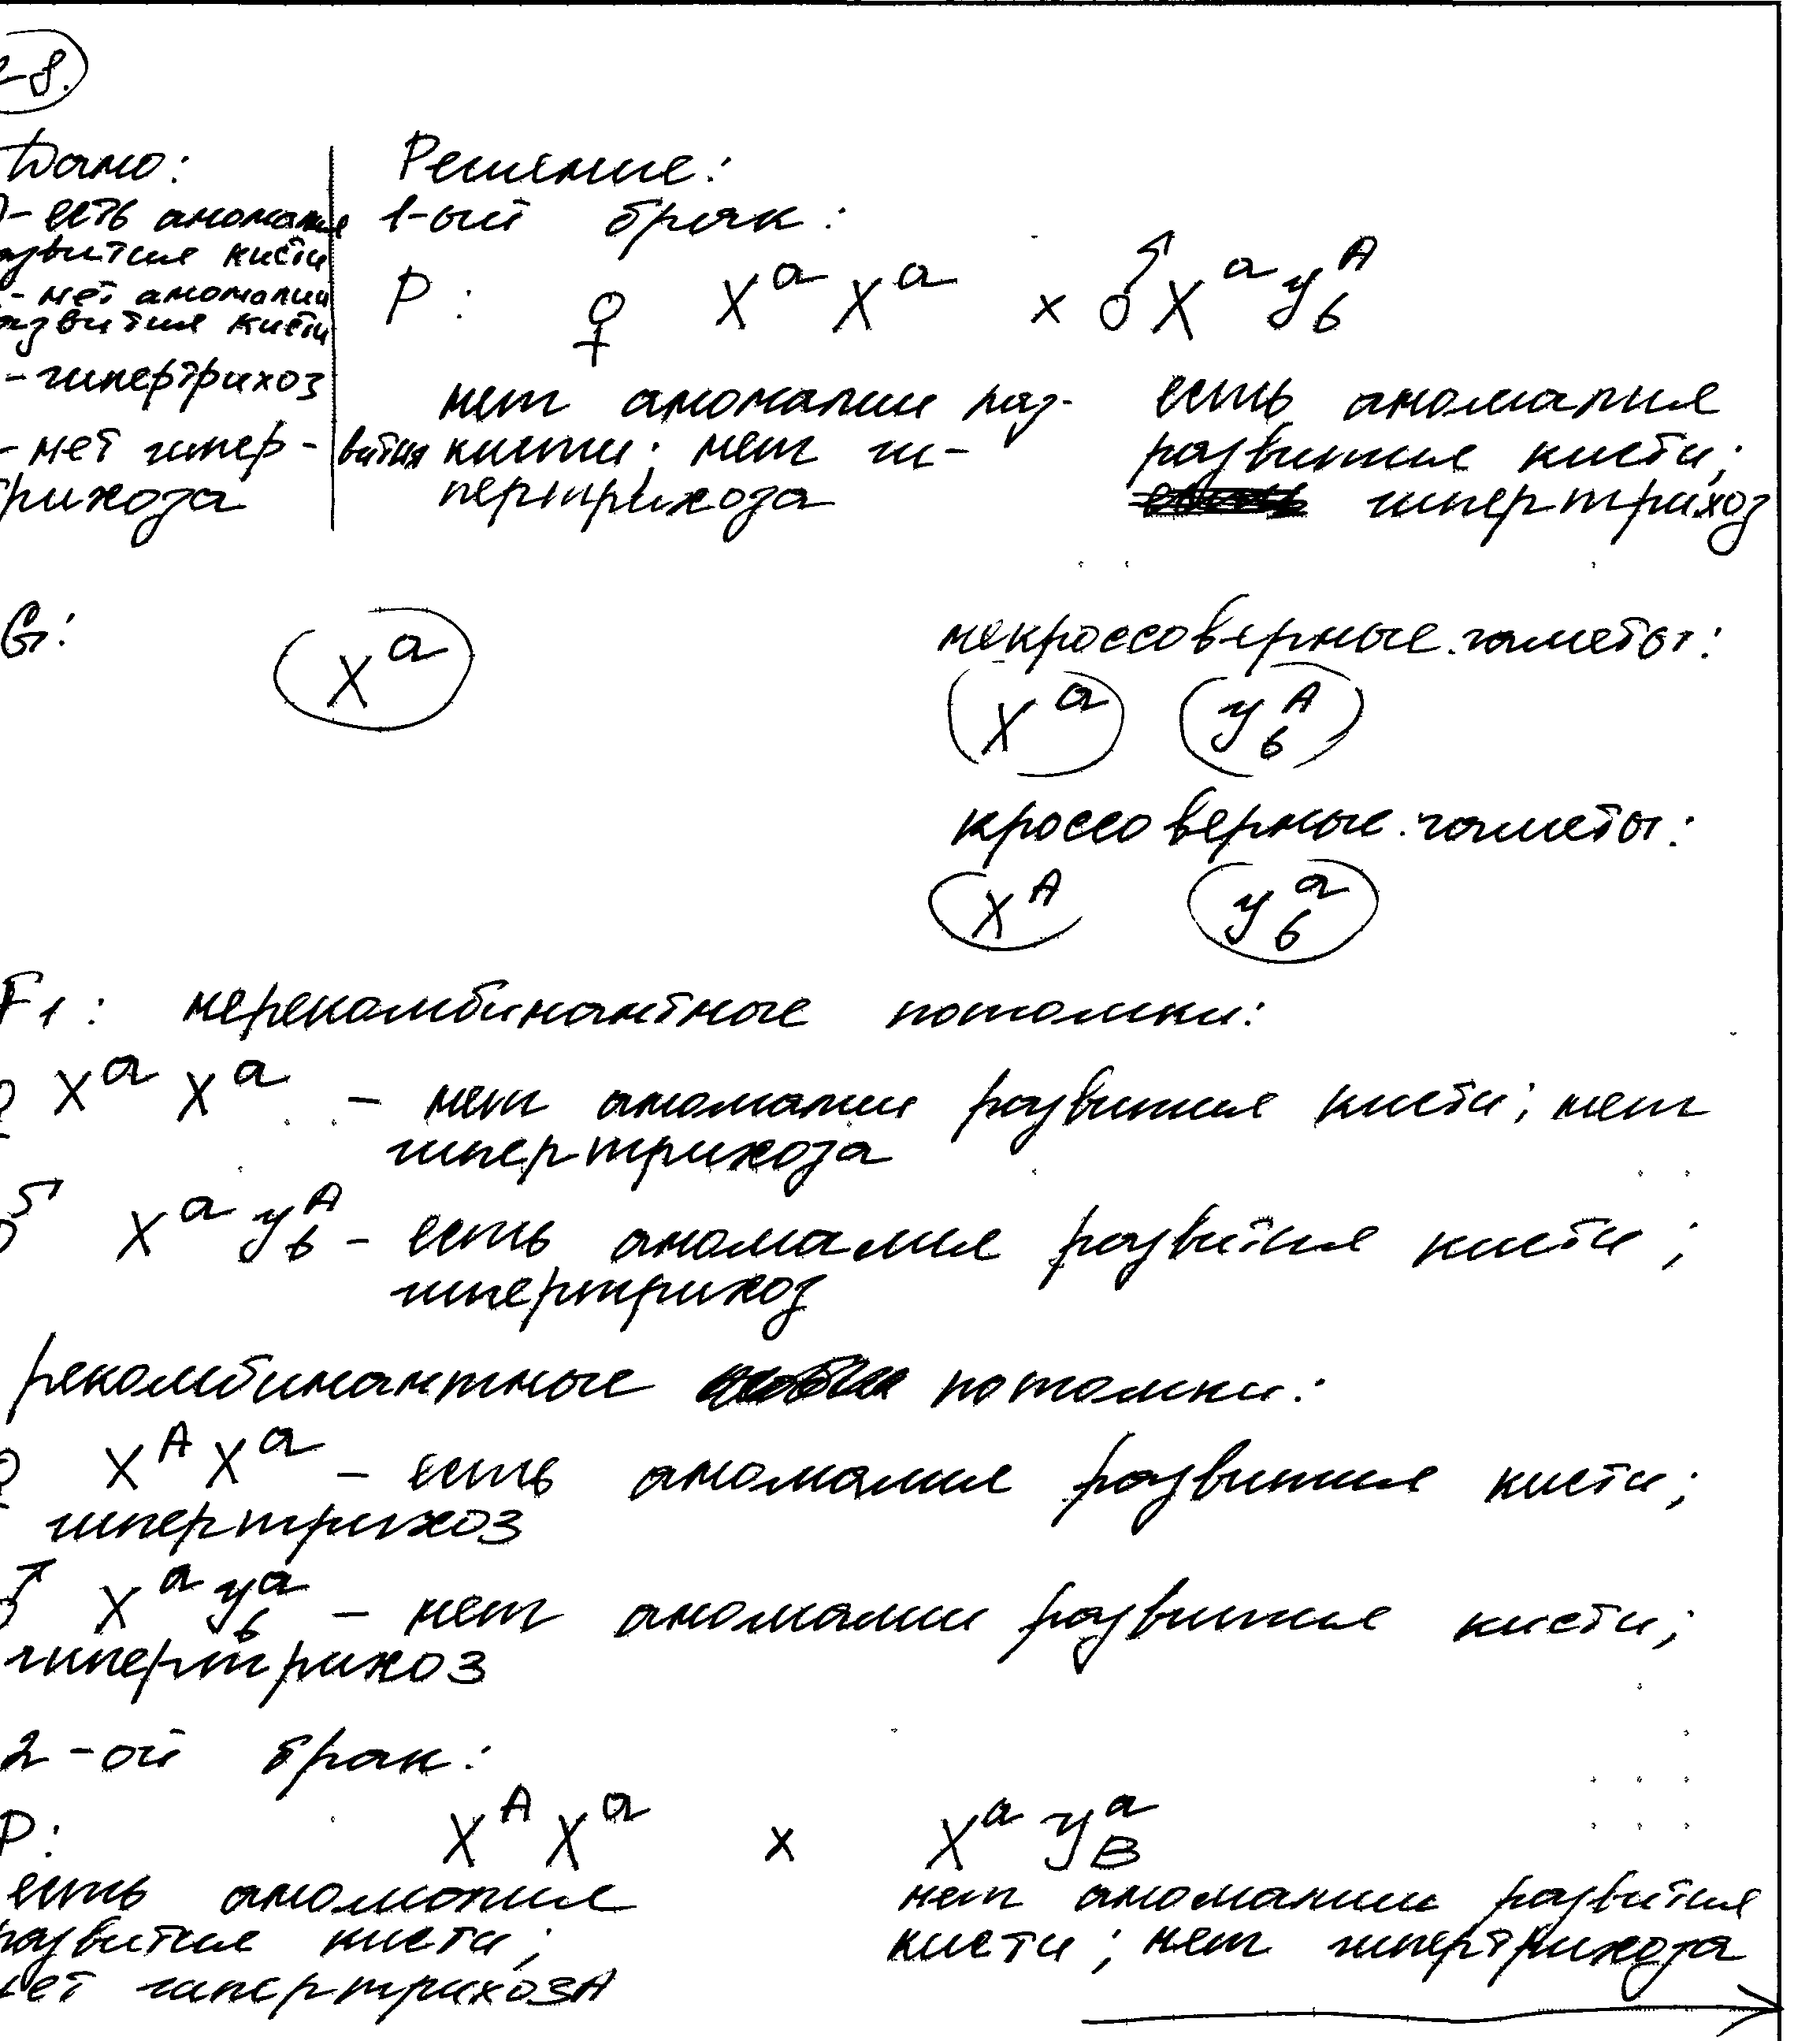 -8.
Дано:
- есть аномалия
азвития кисти
- нет аномалии
азвития кисти
- гипертрихоз
- нет гипер-
рихоза
Решение:
1-ый брак:
P: ♀ XᵃXᵃ x ♂XᵃYᴬb
нет аномалии раз-
вития кисти; нет ги-
пертрихоза
есть аномалия
развития кисти;
гипертрихоз
G: Xᵃ
некроссоверные гаметы:
Xᵃ Yᴬb
кроссоверные гаметы:
Xᴬ Yᵃb
F1: нерекомбинантные потомки:
♀ XᵃXᵃ - нет аномалии развития кисти; нет
гипертрихоза
♂ XᵃYᴬb - есть аномалия развития кисти;
гипертрихоз
рекомбинантные потомки:
♀ XᴬXᵃ - есть аномалия развития кисти;
гипертрихоз
♂ XᵃYᵃb - нет аномалии развития кисти;
гипертрихоз
2-ой брак:
P: XᴬXᵃ x XᵃYᵃB
есть аномалия
развития кисти;
нет гипертрихозА
нет аномалии развития
кисти; нет гипертрихоза